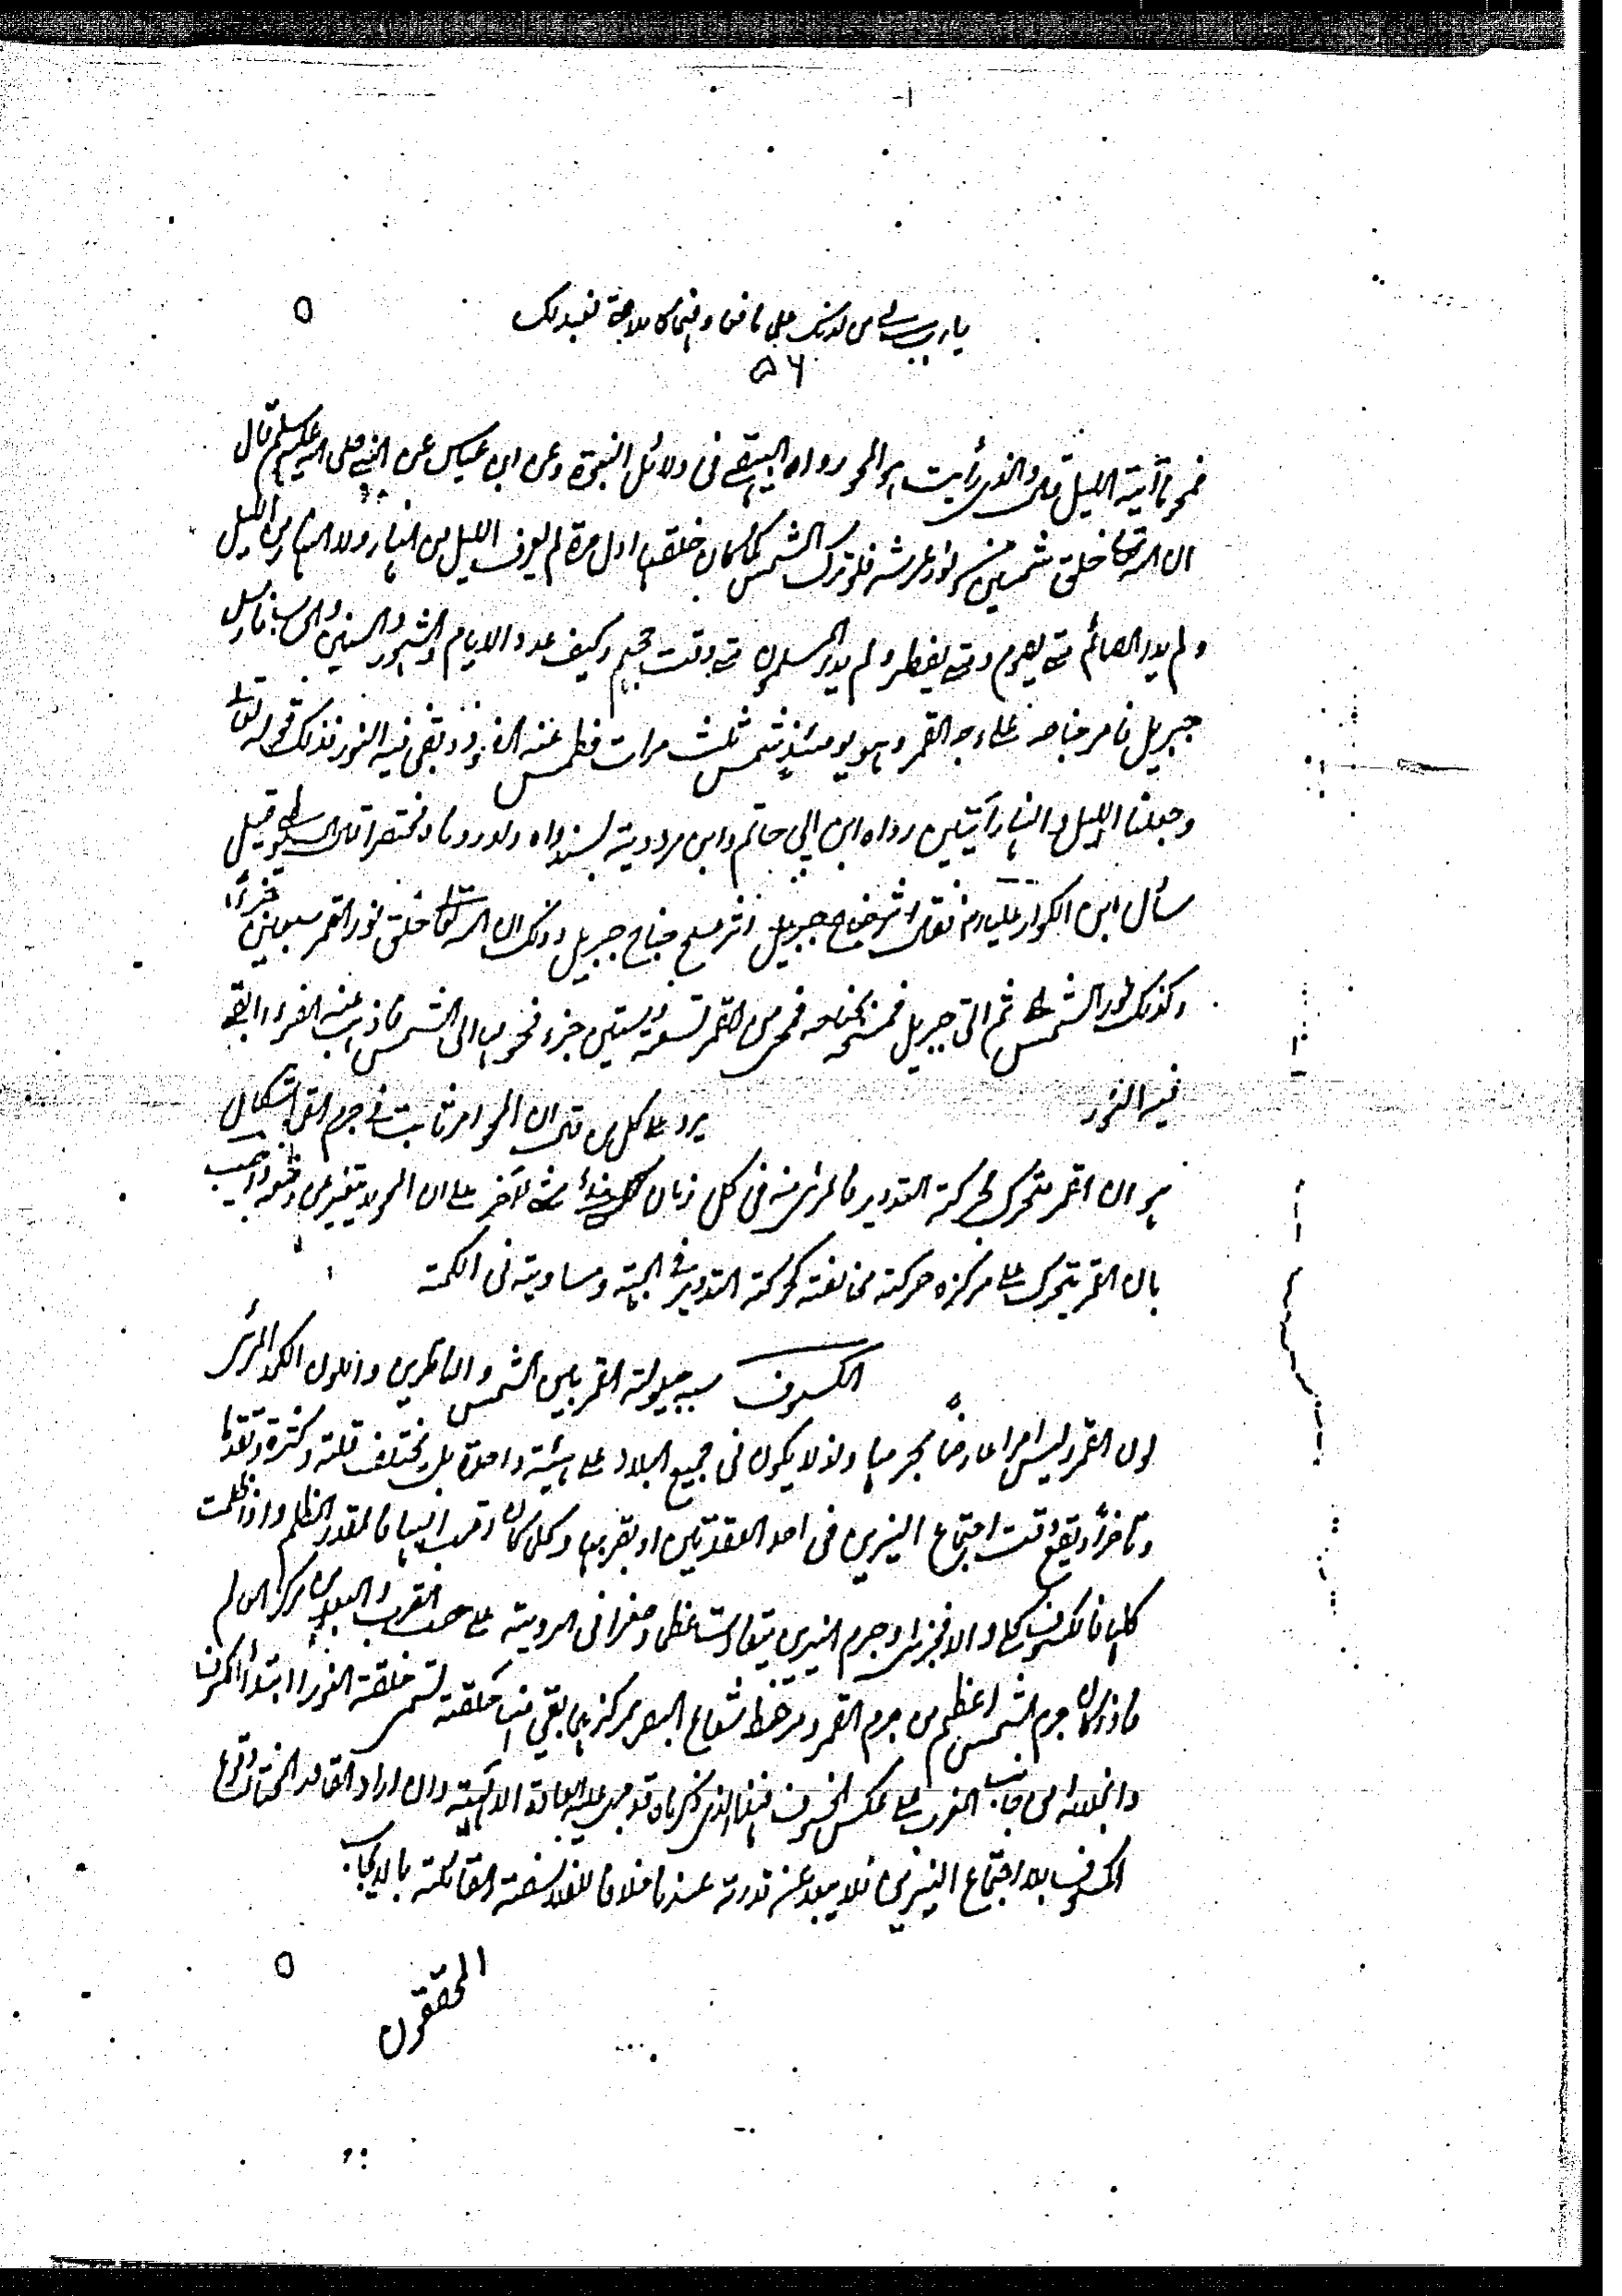 يا رب من لدنك علما نافعا وفهما كاملا لعبدك
٥٦
فمحونا آية الليل قال والذى رأيت هو المحو رواه البيهقى فى دلائل النبوة وعن ابن عباس عن النبى صلى الله عليه وسلم قال
ان الله تعالى خلق شمسين من نور عرشه فلو ترك الشمس كما كان خلقها اول مرة لم يعرف الليل من النهار ولا النهار من الليل
ولم يدر الصائم متى يصوم ومتى يفطر ولم يدر المسلمون متى وقت حجهم وكيف عدد الايام والشهور والسنين والحساب فارسل
جبريل فامر جناحه على وجه القمر وهو يومئذ شمس ثلث مرات فطمس عنه الضوء وبقى فيه النور فذلك قوله تعالى
وجعلنا الليل والنهار آيتين رواه ابن ابى حاتم وابن مردويه بسند واه ولورود ما مختصرا قال السيوطى وقيل
سأل ابن الكواء عليا رض فقال اثر جناح جبريل اثر مسح جناح جبريل وذلك ان الله تعالى خلق نور القمر سبعين جزءا
وكذلك نور الشمس ثم اتى جبريل فمسحه بجناحه فمحى من القمر تسعة وستين جزء فحولها الى الشمس فاذهب عنه الضوء وابقى
فيه النور يرد على كل من قال ان المحو امر ثابت فى جرم القمر اشكال
هو ان القمر متحرك بحركة التدوير فالمرئى منه فى كل زمان شئ آخر على ان المحو لا يتغير عن وضعه واجيب
بان القمر يتحرك على مركزه حركة مخالفة لحركة التدوير فى الجهة ومساوية فى الكمية
الكسوف سببه حيلولة القمر بين الشمس والناظرين واللون الكمد المرئى
لون القمر وليس امرا عارضا بجرمها ولذا لا يكون فى جميع البلاد على هيئة واحدة بل يختلف قلة وكثرة وتقدما
وتأخرا ويقع وقت اجتماع النيرين فى احد العقدتين او بقربها وكل ما كان اقرب اليها فالمقدار اظلم واذا اظلمت
كلها فالكسوف كلى والا فجزئى وجرم النيرين يتفاوت عظما وصغرا فى الروية على حسب القرب والبعد من مركز العالم
فاذا كان جرم الشمس اعظم من جرم القمر ومر خط شعاع البصر بمركزيهما بقى منها حلقة تسمى حلقة النور ابتداء الكسوف
وانجلائه من جانب الغرب على عكس الخسوف فهذا الذى ذكرناه قد جرى عليه العادة الالهية وان اراد القادر المختار وقوع
الكسوف بلا اجتماع النيرين فلا يبعد عن قدرته عندنا خلافا للفلاسفة القائلة بالايجاب
المحققون